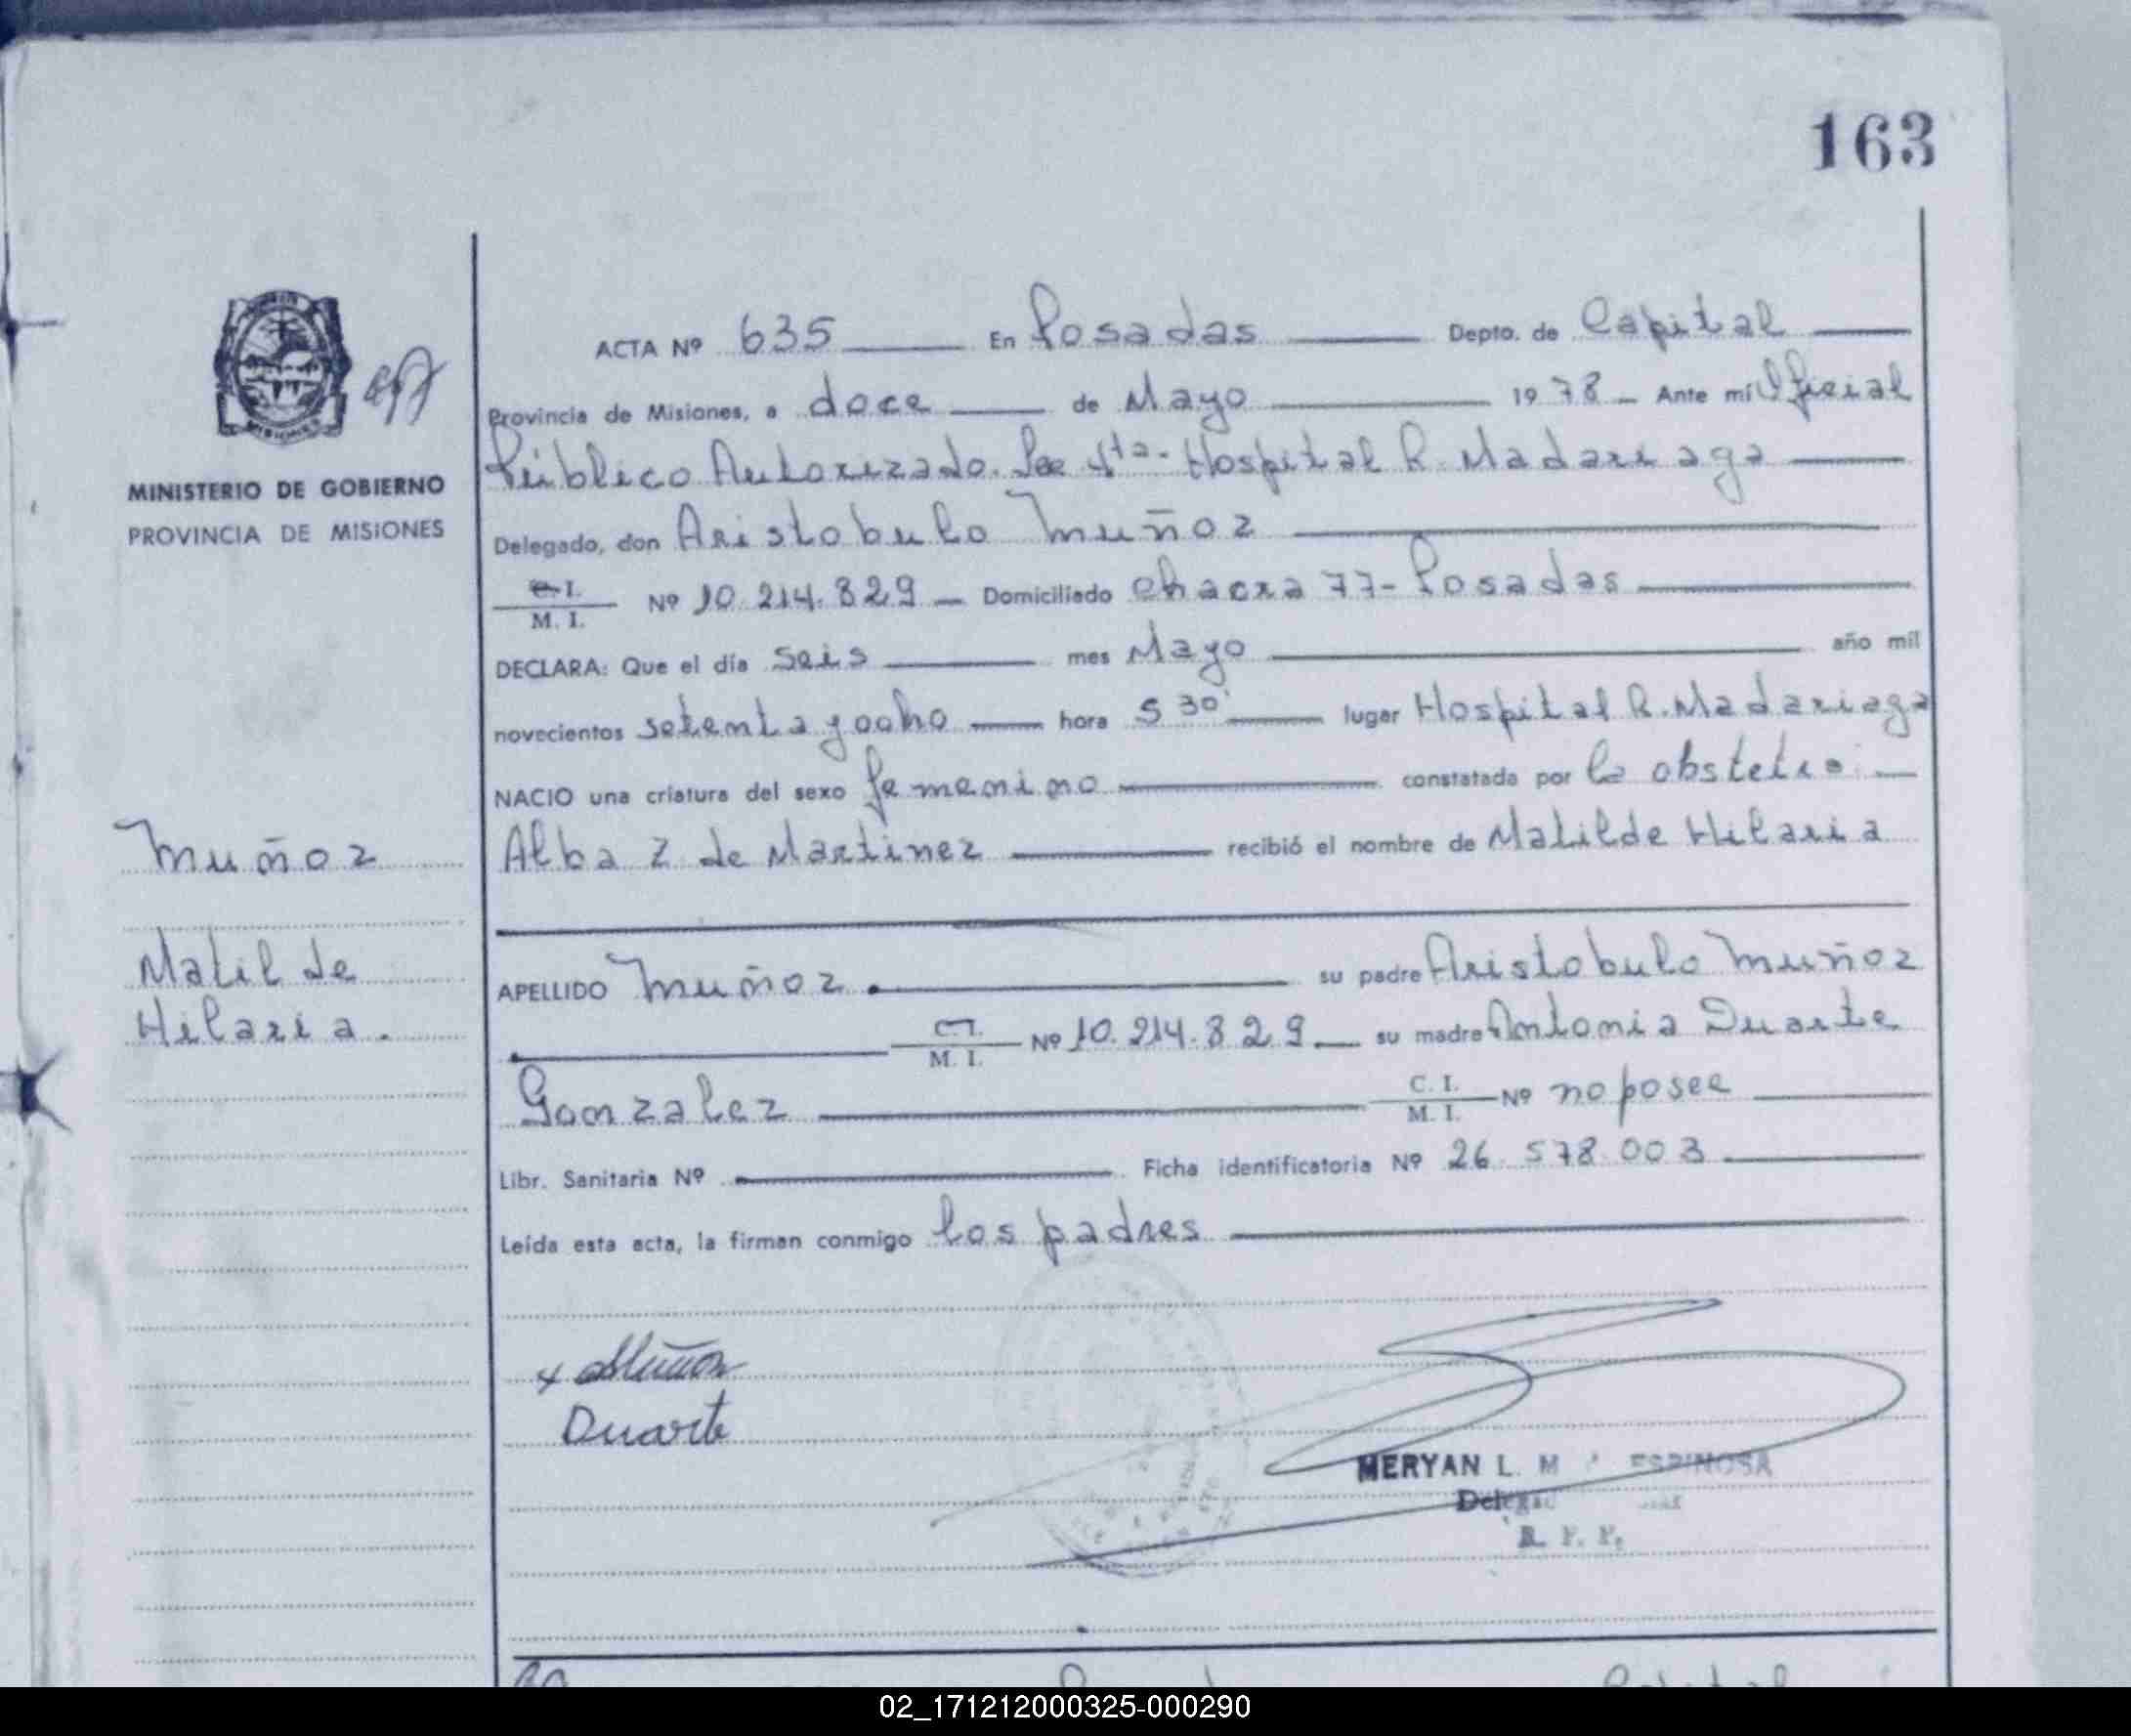 163
ACTA Nº 635 En Posadas Depto. de Capital
Provincia de Misiones, a doce de Mayo 1978 Ante mí Oficial
Público Autorizado. Hospital R. Madariaga
Delegado, don Aristobulo Muñoz
C.I. / M. I. Nº 10.214.829 Domiciliado chacra 77- Posadas
MINISTERIO DE GOBIERNO
PROVINCIA DE MISIONES
DECLARA: Que el día seis mes Mayo año mil
novecientos setenta y ocho hora 5 30' lugar Hospital R. Madariaga
NACIO una criatura del sexo femenino constatada por la obstetra
Muñoz
Alba Z de Martinez recibió el nombre de Matilde Hilaria
Matilde
Hilaria.
APELLIDO Muñoz. su padre Aristobulo Muñoz
C.I. / M. I. Nº 10.214.829 su madre Antonia Duarte
Gonzalez C. I. / M. I. Nº no posee
Libr. Sanitaria Nº Ficha identificatoria Nº 26.578.003
Leída esta acta, la firman conmigo los padres
Muñoz
Duarte
MERYAN L. M ESPINOSA
R. P. P.
02_171212000325-000290